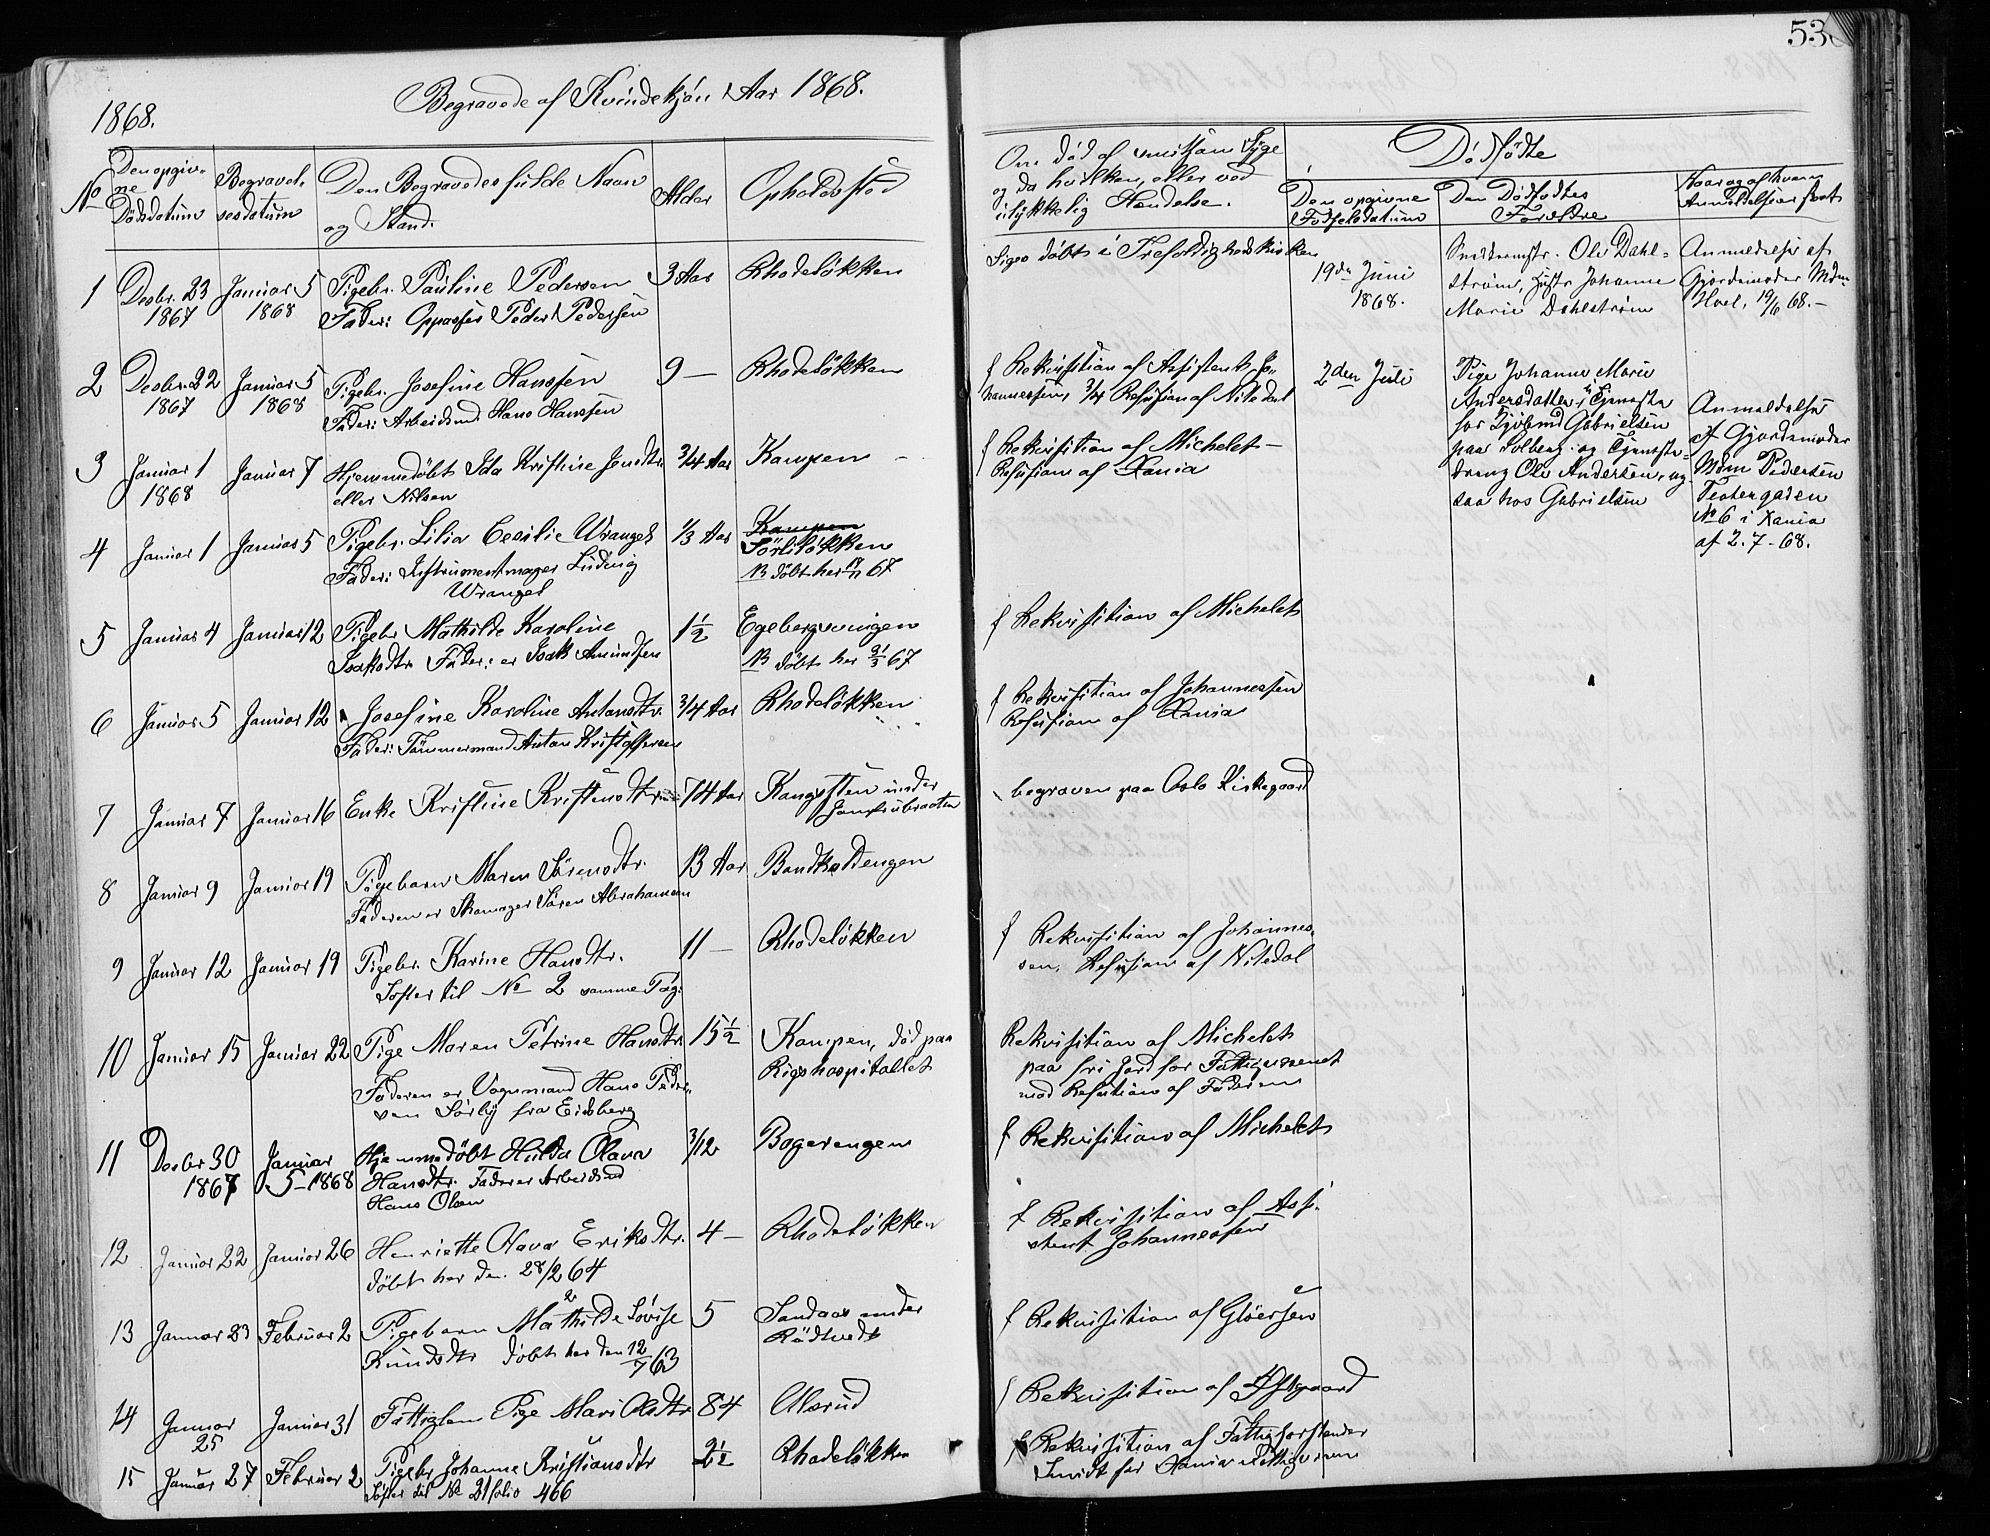 1868.
Begravede af Kvindekjön Aar 1868.
530
No
Den opgivne Dødsdatum
Begravelsesdatum
Den Begravedes fulde Navn og Stand.
Alder
Opholdssted
Om död af smitsom Syge og da hvilken, eller ved ulykkelig Hændelse.
Dödfödte
Den opgivne Fødselsdatum
Den Dödfødtes Forældre
Naar og af hvem Anmeldelsen skeet
1 Decbr. 23 1867 Januar 5 1868 Pigebr. Pauline Pedersen 3 Aar Rhodelökken
Fader: Oppasser Peder Pedersen
Siges döbt i Trefoldighedskirken
2 Decbr. 22 1867 Januar 5 1868 Pigebr. Josefine Hanssen 9 — Rhodelökken
Fader: Arbeidsmd Hans Hanssen
f Rekvisition af Assistent Jo-
hannessen, 3/4 Refusion af Nitedal
3 Januar 1 1868 Januar 7 Hjemmedöbt Ida Kristine Jensdtr. 3/4 Aar Kampen
eller Nilsen
f Rekvisition af Michelet —
Refusion af Xania
4 Januar 1 Januar 5 Pigebr. Lilia Cecilie Wrangel 1/3 Aar Kampen
Sörlilökken
Fader: Instrumentmager Ludvig NB döbt her 17/11 67
Wrangel
5 Januar 4 Januar 12 Pigebr Mathilde Karoline 1 1/2 Egebergsvingen
Isaksdtr Fader: er Isak Amundsen NB döbt her 31/3 67
f Rekvisition af Michelet
6 Januar 5 Januar 12 Josefine Karoline Antonsdtr. 3/4 Aar Rhodelökken
Fader: Tömmermand Anton Kristoffersen
f Rekvisition af Johannessen
Refusion af Xania
7 Januar 7 Januar 16 Enke Kristine Kristensdtr 74 Aar Kangsten under
Jomfrubraaten
begraven paa Oslo Kirkegaard
8 Januar 9 Januar 19 Pigebarn Maren Sörensdtr. 13 Aar Bondkattengen
Faderen er Skomager Sören Abrahamsen
9 Januar 12 Januar 19 Pigebr. Karine Hansdtr. 11 — Rhodelökken
Söster til No 2 samme Pag:
f Rekvisition af Johannes-
sen, Refusion af Nitedal
10 Januar 15 Januar 22 Pige Maren Petrine Hansdtr 15 1/2 Kampen, död paa
Rigshospitalet
Faderen er Vognmand Hans Peder-
sen Sörby fra Eidsberg
Rekvisition af Michelet
paa fri Jord for Fattigvæsenet
mod Refusion af Faderen
11 Decbr 30 1867 Januar 5-1868 Hjemmedöbt Hulda Olava 3/12 Bogerengen
Hansdtr. Fader er Arbeidsmd
Hans Olsen
f Rekvisition af Michelet
12 Januar 22 Januar 26 Henriette Olava Eriksdtr. 4 — Rhodelökken
döbt her den 28/2 64
f Rekvisition af Assi-
stent Johannessen
13 Januar 23 Februar 2 Pigebarn Mathilde Lovise 5 Sandaas under
Knudsdtr döbt her den 12/7 63 Rödtvedt
f Rekvisition af Glöersen
14 Januar 25 Januar 31 Fattiglem Pige Mari Olsdtr 84 Ulsrud
f Rekvisition af
15 Januar 27 Februar 2 Pigebr Johanne Kristiansdtr 2 1/2 Rhodelökken
Söster til No 21 folio 466
f Rekvisition af Fattigforstander
Smidt for Xania
19de Juni 1868.
Snedkermstr. Ole Dahl-
ström, Hustr Johanne
Marie Dahlström
Anmeldelse af
Gjordemoder Mdm
Hoel, 19/6 68. —
2den Juli
Pige Johanne Marie
Andersdatter, i Tjeneste
hos Gabrielsen
paa Solberg og Tjeneste-
dreng Ole Andersen, og-
saa hos Gabrielsen
Anmeldelse
af Gjordemoder
Mdm Pedersen
No 6 i Xania
af 2. 7 - 68.